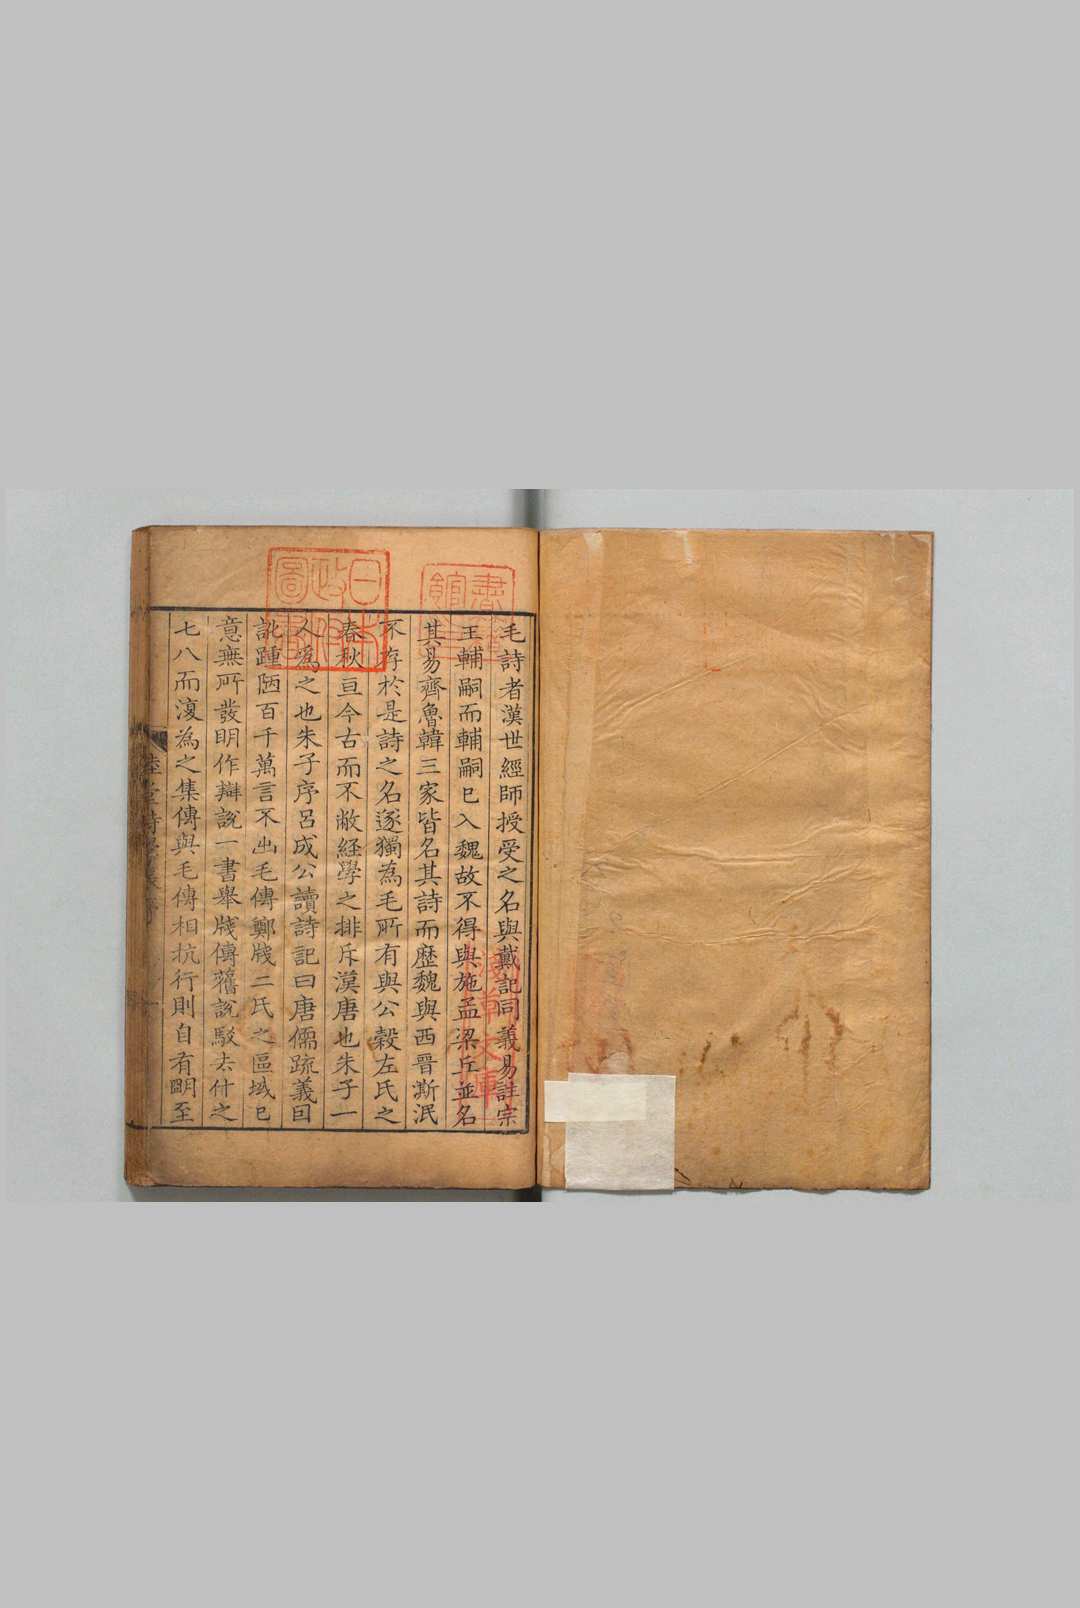 毛詩者漢世經師授受之名與戴記同義易註宗
王輔嗣而輔嗣已入魏故不得與施孟梁丘並名
其易齊魯韓三家皆名其詩而歷魏與西晋澌泯
不存於是詩之名遂獨為毛所有與公穀左氏之
春秋亘今古而不敝経學之排斥漢唐也朱子一
人為之也朱子序呂成公讀詩記曰唐儒疏義因
訛踵陋百千萬言不出毛傳鄭牋二氏之區域已
意無所發明作辯說一書舉牋傳舊說駁去什之
七八而復為之集傳與毛傳相抗行則自有明至
陸堂詩學 序
日本政府圖書
書館
淺草文庫